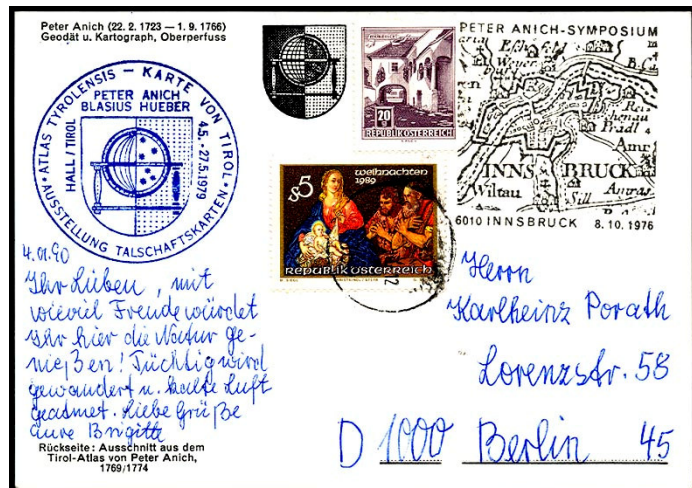 Peter Anich (22. 2. 1723 — 1. 9. 1766)
Geodät u. Kartograph, Oberperfuss
ATLAS TYROLENSIS — KARTE VON TIROL
PETER ANICH
BLASIUS HUEBER
HALL/TIROL
4.5. - 27.5.1979
AUSSTELLUNG TALSCHAFTSKARTEN
20 g
REPUBLIK ÖSTERREICH
PETER ANICH-SYMPOSIUM
Weyer
Pradl
INNS BRUCK
Wiltau
Sill
Amras
6010 INNSBRUCK 8. 10. 1976
s5
weihnachten
1989
REPUBLIK ÖSTERREICH
4.01.90
Ihr Lieben, mit
wieviel Freude würdet
Ihr hier die Natur ge-
nießen! Tüchtig wird
gewandert u. kalte Luft
geatmet. Liebe Grüße
eure Brigitte
Rückseite: Ausschnitt aus dem
Tirol-Atlas von Peter Anich,
1769/1774
Herrn
Karlheinz Porath
Lorenzstr. 58
D 1000 Berlin 45